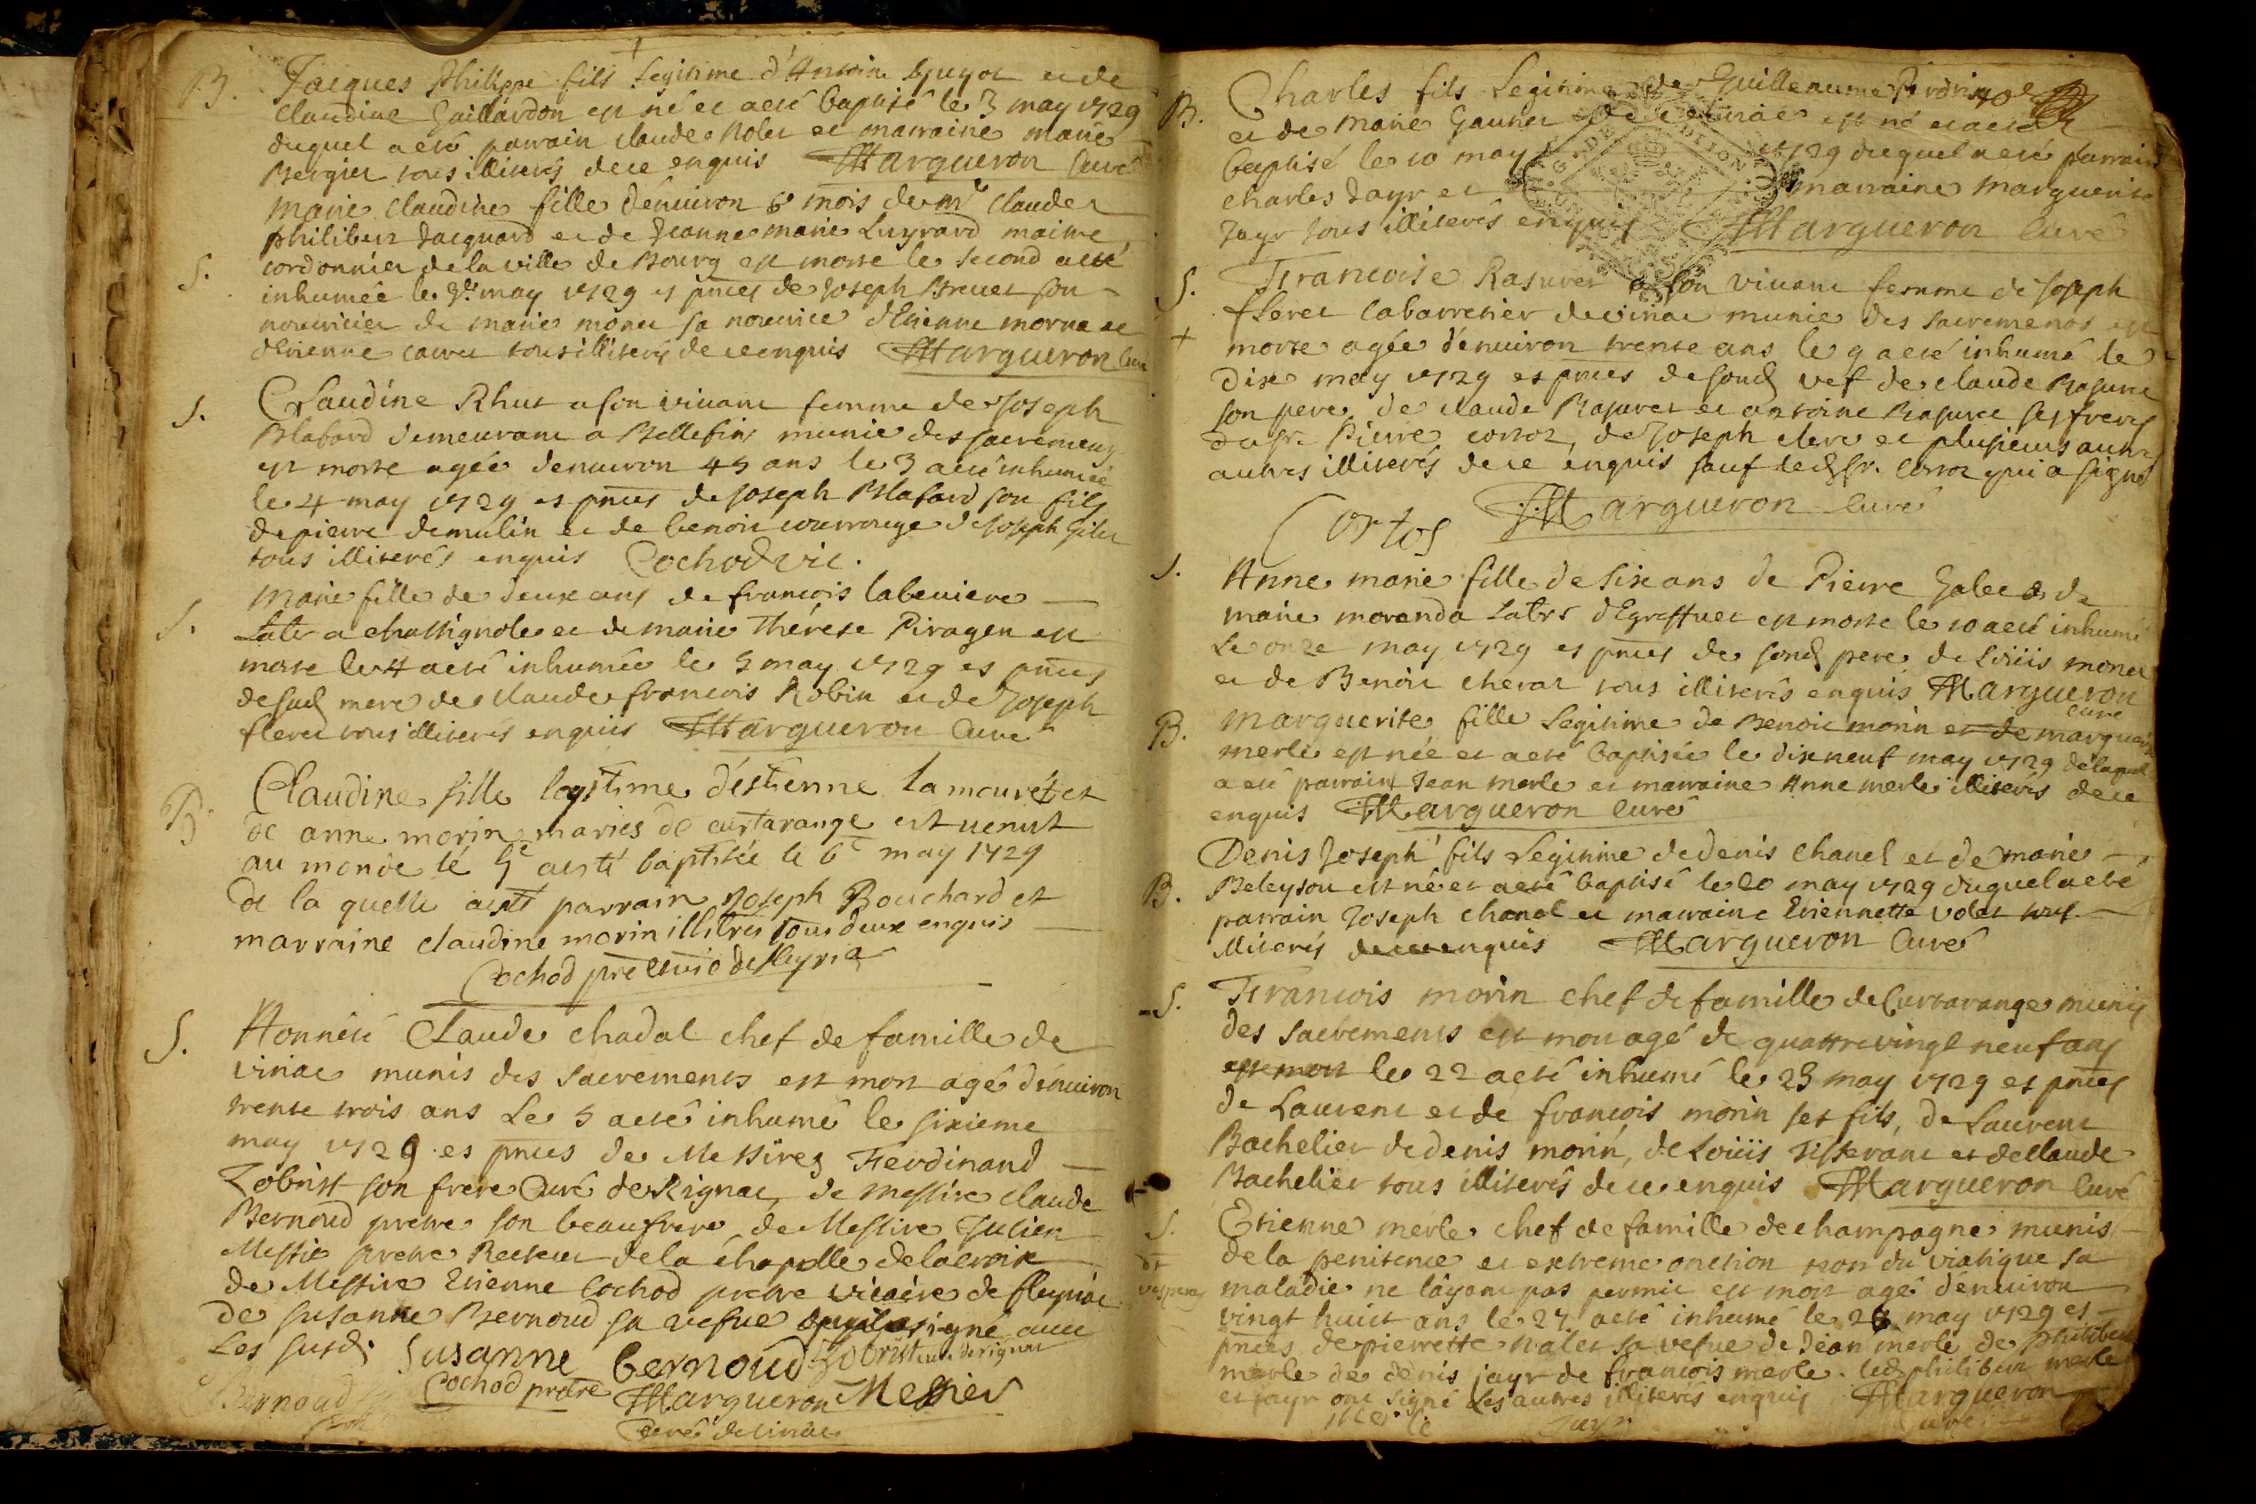 B. Jacques philippe fils legitime d'Antoine guyot et de
claudine Gaillardon est né et a eté baptisé le 3 may 1729
duquel a eté parrain claude Nolet et marraine marie
Bergier tous illiterés de ce enquis Margueron Curé
marie claudine fille d'enuiron 6 mois de mr claude
philibert Jacquard et de Jeanne marie Luyrard maitre
S. cordonnier de la ville de Bourg est morte le second a eté
inhumée le 3e may 1729 es pnces de Joseph Brevet son
nourricier de marie monet sa nourrice d'Etienne morna et
d'Etienne carret tous illiterés de ce enquis Margueron Curé
S. Claudine Rhut a son viuant femme de Joseph
Blafard demeurant a Bellefin munie des sacremens
est morte agée d'enuiron 45 ans le 3 a eté inhumée
le 4 may 1729 es pnces de Joseph Blafard son fils
de pierre demulin et de benoit couurouge de Joseph Gilet
tous illiterés enquis Cochod vic.
Marie fille de deux ans de francois labeuiere
S. Later a chassignole et de marie Thérese Piragen est
morte le 4 a eté inhumée le 5 may 1729 es pnces
de sad mere de claude francois Robin et de Joseph
fleret tous illiterés enquis Margueron Curé
B. Claudine fille legitime d'estienne la mouret et
de anne morin mariés de curtarange est uenut
au monde le 5e aesté baptisée le 6e may 1729
de la quelle aesté parrain Joseph Bouchard et
marraine claudine morin illitrés tous deux enquis
Cochod pretre vic de fleyria
S. Honnête Claude chadal chef de famille de
viriac munis des sacrements est mort agé d'enuiron
trente trois ans Le 5 a eté inhumé le sixieme
may 1729 es pnces de Messires Ferdinand
Zobrist son frere Curé de Rignac, de messire claude
Bernoud pretre son beaufrere, de Messire Julien
Messie pretre Recteur de la chapelle de la croix
de Messire Etienne Cochod pretre vicaire de fleyriac
de Susanne Bernoud sa vefue signé auec
Les susd. Susanne bernoud Zobrist curé de rignat
Bernoud Cochod pretre Margueron Messier
Curé de viriac
Charles fils Legitime de Guillenume Perdrix
B. et de marie Gautier de viriac est né et a eté
baptisé le 10 may 1729 duquel a eté parrain
charles Jayr et marraine marguerite
Jayr tous illiterés enquis Margueron Curé
S. Francoise Rasuret a son viuant femme de Joseph
fleret Cabarretier de viriac munie des sacremens est
+ morte agée d'enuiron trente ans le 9 a eté inhumé le
dix may 1729 es pnces de sond vef de claude Rasuret
son pere, de claude Rasuret et antoine Rasuret ses freres
du sr. Pierre cortoz, de Joseph clere et plusieurs autres
autres illiterés de ce enquis sauf led sr. Cortoz qui a signé
Cortos Margueron Curé
S. Anne marie fille de six ans de Pierre Galet et de
marie moranda Latrs d'Egreffuet est morte le 10 a eté inhumé
Le onze may 1729 es pnces de sond pere, de Loüis monet
et de Benoit cherat tous illiterés enquis Margueron
curé
B. Marguerite fille Legitime de Benoit morin et de marguerite
merle est née et a eté baptisée le dixneuf may 1729 de laquel
a eté parrain Jean merle et marraine Anne merle illiterés de ce
enquis Margueron Curé
Denis Joseph fils Legitime de denis chanel et de marie
B. Beleysou est né et a eté baptisé le 20 may 1729 duquel a eté
parrain Joseph chanel et marraine Etiennette volet tous
illiterés de ce enquis Margueron Curé
S. Francois morin chef de famille de Curtarange munis
des sacrements est mort agé de quattre vingt neuf ans
est mort le 22 a eté inhumé le 23 may 1729 es pnces
de Laurent et de francois morin ses fils, de Laurent
Bachelier de denis morin, de Loüis Tisserant et de claude
Bachelier tous illiterés de ce enquis Margueron Curé
S. Etienne merle chef de famille de champagne munis
de la penitence et extreme onction non du viatique sa
maladie ne l'ayant pas permit est mort agé d'enuiron
vingt huict ans le 27 a eté inhumé le 28 may 1729 es
pnces de pierrette nolet sa vefue de Jean merle de philibert
merle de denis jayr de francois merle. led philibert merle
et jayr ont signé les autres illiterés enquis Margueron
merle Jayr curé